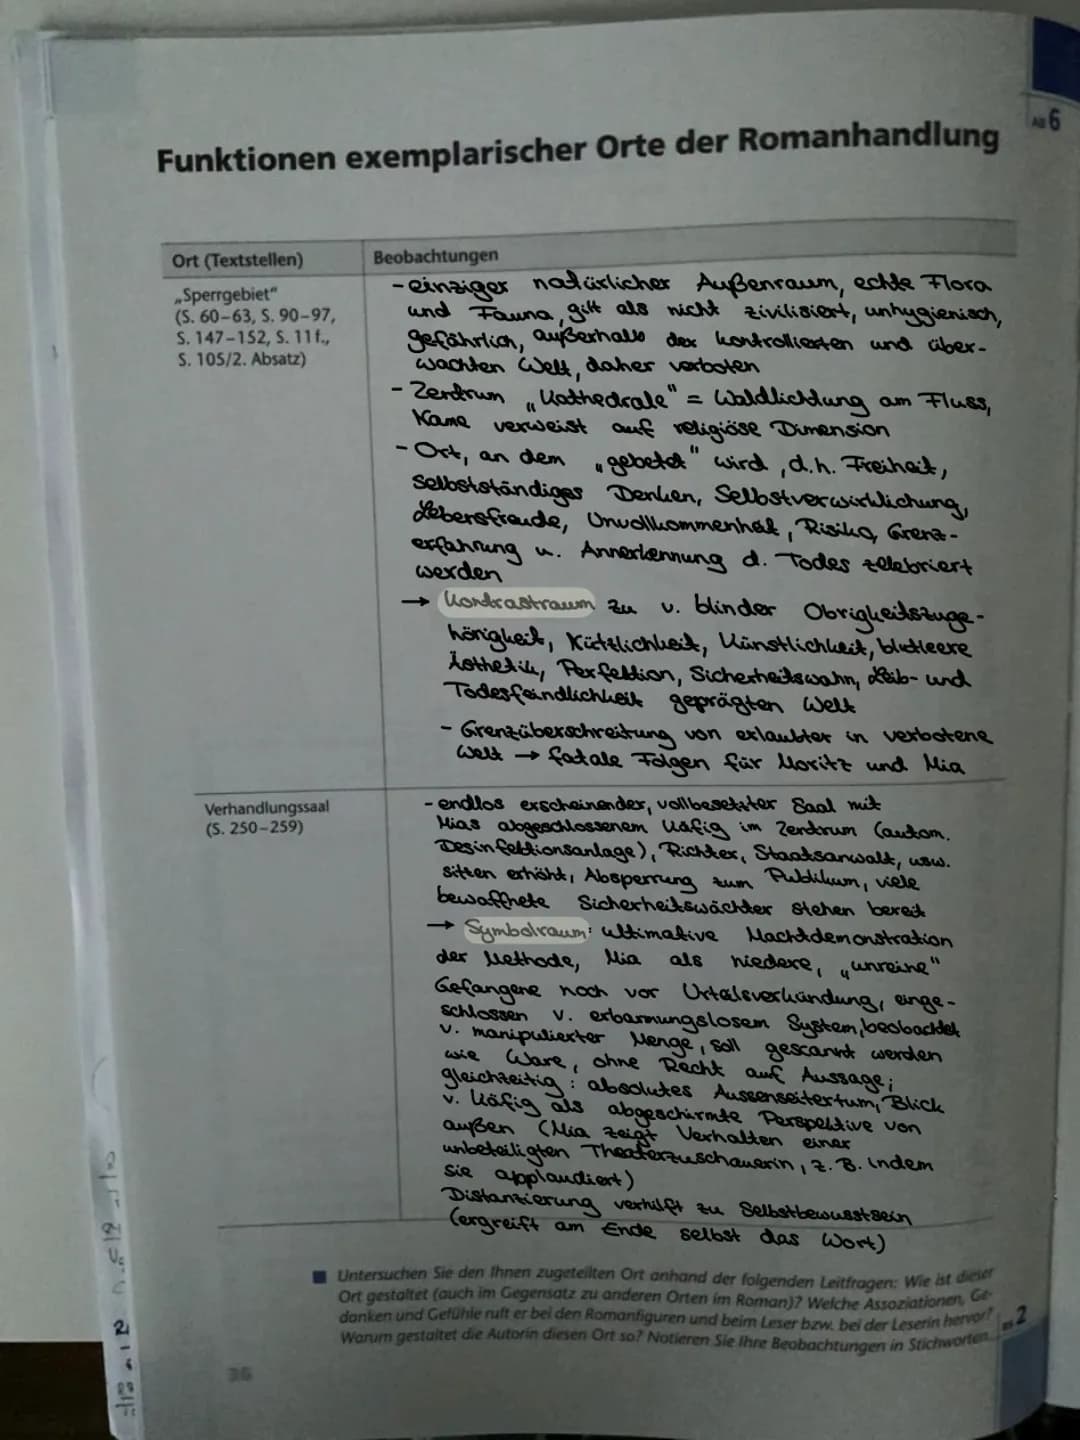 AB 6
Funktionen exemplarischer Orte der Romanhandlung
Ort (Textstellen)
Beobachtungen
„Sperrgebiet“
(S. 60–63, S. 90–97,
S. 147–152, S. 11f.,
S. 105/2. Absatz)
- einziger natürlicher Außenraum, echte Flora
und Fauna, gilt als nicht zivilisiert, unhygienisch,
gefährlich, außerhalb der kontrollierten und über-
wachten Welt, daher verboten
- Zentrum „Kathedrale" = Waldlichtung am Fluss,
Name verweist auf religiöse Dimension
- Ort, an dem „gebetet" wird, d.h. Freiheit,
Selbstständiges Denken, Selbstverwirklichung,
Lebensfreude, Unvollkommenheit, Risiko, Grenz-
erfahrung u. Annerkennung d. Todes zelebriert
werden
→ Kontrastraum zu v. blinder Obrigkeitszuge-
hörigkeit, Nützlichkeit, Künstlichkeit, blutleere
Ästhetik, Perfektion, Sicherheitswahn, Leib- und
Todesfeindlichkeit geprägten Welt
- Grenzüberschreitung von erlaubter in verbotene
Welt → fatale Folgen für Moritz und Mia
Verhandlungssaal
(S. 250–259)
- endlos erscheinender, vollbesetzter Saal mit
Mias abgeschlossenem Käfig im Zentrum (autom.
Desinfektionsanlage), Richter, Staatsanwalt, usw.
sitzen erhöht, Absperrung zum Publikum, viele
bewaffnete Sicherheitswächter stehen bereit
→ Symbolraum: ultimative Machtdemonstration
der Methode, Mia als niedere, „unreine"
Gefangene noch vor Urteilsverkündung, einge-
schlossen v. erbarmungslosem System, beobachtet
v. manipulierter Menge, soll gescannt werden
wie Ware, ohne Recht auf Aussage;
gleichzeitig: absolutes Aussenseitertum, Blick
v. Käfig als abgeschirmte Perspektive von
außen (Mia zeigt Verhalten einer
unbeteiligten Theaterzuschauerin, z.B. indem
sie applaudiert)
Distanzierung verhilft zu Selbstbewusstsein
(ergreift am Ende selbst das Wort)
Untersuchen Sie den Ihnen zugeteilten Ort anhand der folgenden Leitfragen: Wie ist dieser
Ort gestaltet (auch im Gegensatz zu anderen Orten im Roman)? Welche Assoziationen, Ge-
danken und Gefühle ruft er bei den Romanfiguren und beim Leser bzw. bei der Leserin hervor?
Warum gestaltet die Autorin diesen Ort so? Notieren Sie Ihre Beobachtungen in Stichworten.
2
36